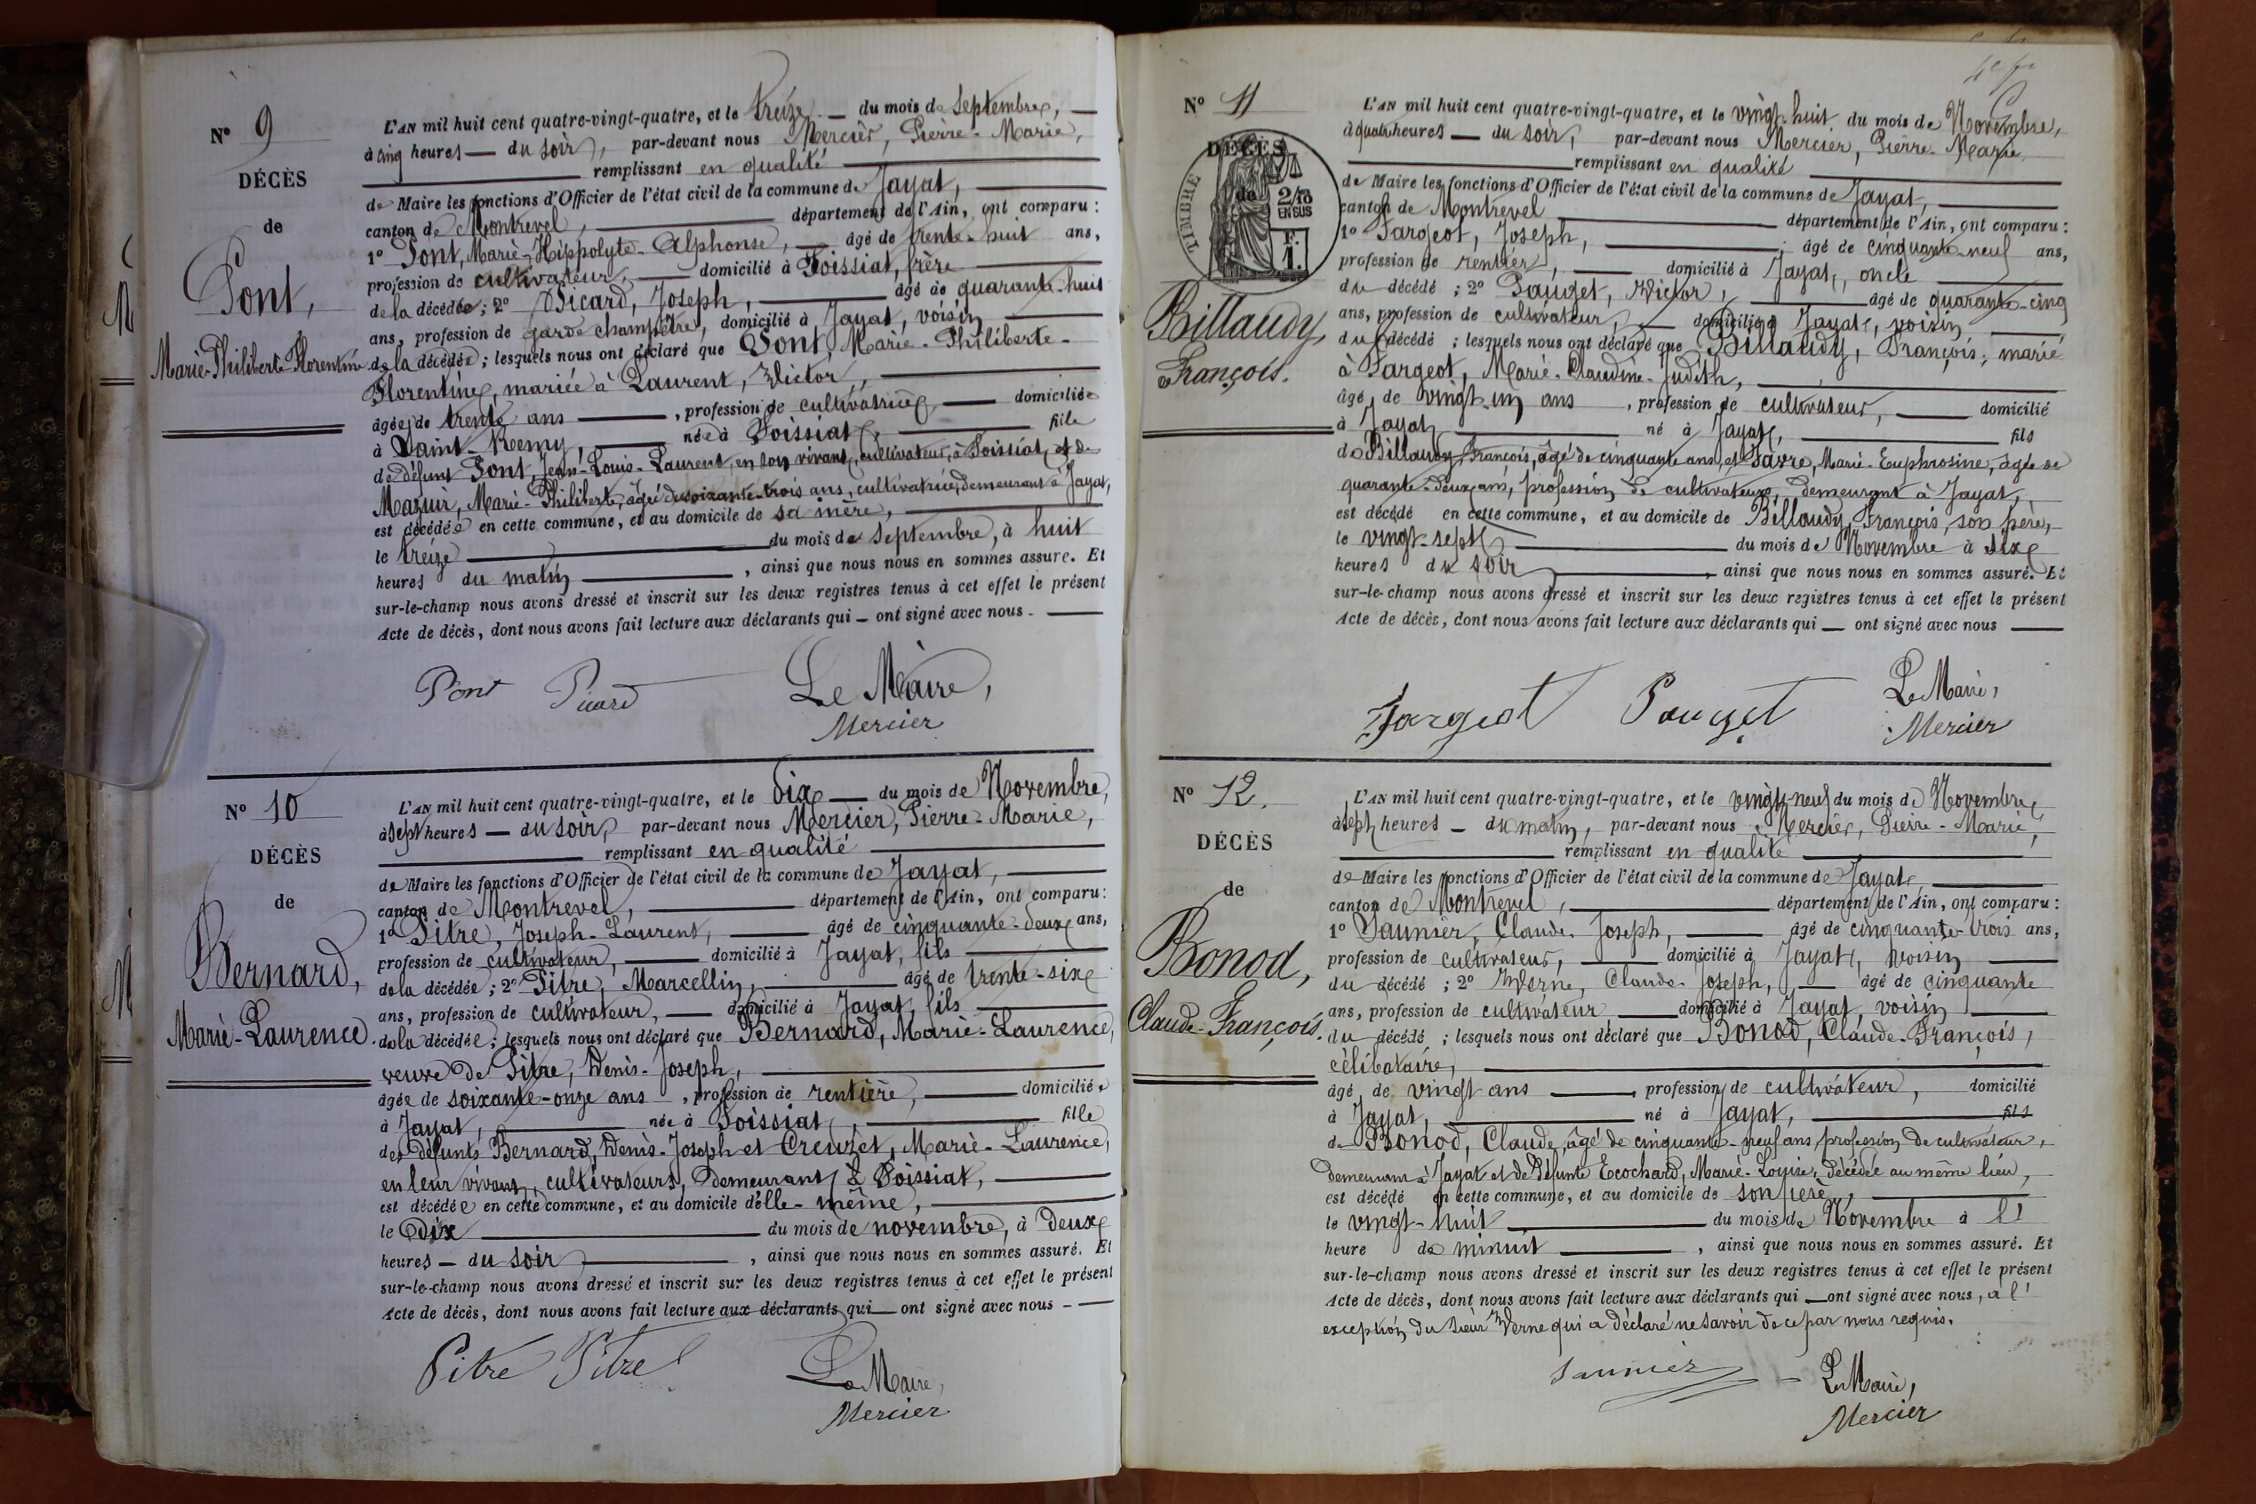 N° 9
DÉCÈS
de
Pont,
Marie-Philiberte-Florentine
L'AN mil huit cent quatre-vingt-quatre, et le treize — du mois de Septembre, —
à cinq heures — du soir, par-devant nous Mercier, Pierre-Marie,
remplissant en qualité
de Maire les fonctions d'Officier de l'état civil de la commune de Jayat,
canton de Montrevel, département de l'Ain, ont comparu :
1° Pont, Marie-Hippolyte-Alphonse, — âgé de trente-huit ans,
profession de cultivateur, domicilié à Foissiat, frère
de la décédée ; 2° Picard, Joseph, âgé de quarante-huit
ans, profession de garde champêtre, domicilié à Jayat, voisin
de la décédée ; lesquels nous ont déclaré que Pont, Marie-Philiberte-
Florentine, mariée à Laurent, Victor,
âgée de trente ans, profession de cultivatrice, domiciliée
à Saint-Remy, née à Foissiat, fille
de défunt Pont, Jean-Louis-Laurent, en son vivant, cultivateur, à Foissiat, et de
Mazuir, Marie-Philiberte, âgée de soixante-trois ans, cultivatrice, demeurant à Jayat,
est décédée en cette commune, et au domicile de sa mère,
le treize du mois de Septembre, à huit
heures du matin, ainsi que nous nous en sommes assuré. Et
sur-le-champ nous avons dressé et inscrit sur les deux registres tenus à cet effet le présent
Acte de décès, dont nous avons fait lecture aux déclarants qui — ont signé avec nous. —
Pont Picard Le Maire,
Mercier
N° 10
DÉCÈS
de
Bernard,
Marie-Laurence.
L'AN mil huit cent quatre-vingt-quatre, et le dix — du mois de Novembre,
à sept heures — du soir, par-devant nous Mercier, Pierre-Marie,
remplissant en qualité
de Maire les fonctions d'Officier de l'état civil de la commune de Jayat,
canton de Montrevel, département de l'Ain, ont comparu :
1° Pitre, Joseph-Laurent, âgé de cinquante-deux ans,
profession de cultivateur, domicilié à Jayat, fils
de la décédée ; 2° Pitre, Marcellin, âgé de trente-six
ans, profession de cultivateur, domicilié à Jayat, fils
de la décédée ; lesquels nous ont déclaré que Bernard, Marie-Laurence,
veuve de Pitre, Denis-Joseph,
âgée de soixante-onze ans, profession de rentière, domiciliée
à Jayat, née à Foissiat, fille
des défunts Bernard, Denis-Joseph et Creuzet, Marie-Laurence,
en leur vivant, cultivateurs, demeurant à Foissiat,
est décédée en cette commune, et au domicile d'elle-même,
le dix du mois de novembre, à deux
heures — du soir, ainsi que nous nous en sommes assuré. Et
sur-le-champ nous avons dressé et inscrit sur les deux registres tenus à cet effet le présent
Acte de décès, dont nous avons fait lecture aux déclarants qui — ont signé avec nous - —
Pitre Pitre Le Maire,
Mercier
N° 11
DÉCÈS
de
TIMBRE
2/10
EN SUS
F.
1.
Billaudy,
François.
L'AN mil huit cent quatre-vingt-quatre, et le vingt-huit du mois de Novembre,
à quatre heures — du soir, par-devant nous Mercier, Pierre-Marie
remplissant en qualité
de Maire les fonctions d'Officier de l'état civil de la commune de Jayat,
canton de Montrevel département de l'Ain, ont comparu :
1° Fargeot, Joseph, âgé de cinquante-neuf ans,
profession de rentier, domicilié à Jayat, oncle
du décédé ; 2° Pauget, Victor, âgé de quarante-cinq
ans, profession de cultivateur, domicilié à Jayat, voisin
du décédé ; lesquels nous ont déclaré que Billaudy, François, marié
à Fargeot, Marie-Claudine-Judith,
âgé de vingt-un ans, profession de cultivateur, domicilié
à Jayat né à Jayat, fils
de Billaudy, François, âgé de cinquante ans, et Favre, Marie-Euphrosine, âgée de
quarante-deux ans, profession de cultivateurs, demeurant à Jayat,
est décédé en cette commune, et au domicile de Billaudy, François, son père,
le vingt-sept du mois de Novembre à dix
heures du soir, ainsi que nous nous en sommes assuré. Et
sur-le-champ nous avons dressé et inscrit sur les deux registres tenus à cet effet le présent
Acte de décès, dont nous avons fait lecture aux déclarants qui — ont signé avec nous —
Fargeot Pauget Le Maire,
Mercier
N° 12.
DÉCÈS
de
Bonod,
Claude-François.
L'AN mil huit cent quatre-vingt-quatre, et le vingt-neuf du mois de Novembre,
à sept heures — du matin, par-devant nous Mercier, Pierre-Marie,
remplissant en qualité
de Maire les fonctions d'Officier de l'état civil de la commune de Jayat
canton de Montrevel, département de l'Ain, ont comparu :
1° Saunier, Claude-Joseph, âgé de cinquante-trois ans,
profession de cultivateur, domicilié à Jayat, voisin
du décédé ; 2° Verne, Claude-Joseph, âgé de cinquante
ans, profession de cultivateur domicilié à Jayat, voisin
du décédé ; lesquels nous ont déclaré que Bonod, Claude-François,
célibataire,
âgé de vingt ans, profession de cultivateur, domicilié
à Jayat, né à Jayat, fils
de Bonod, Claude, âgé de cinquante-neuf ans, profession de cultivateur,
demeurant à Jayat et de défunte Ecochard, Marie-Louise, décédée au même lieu,
est décédé en cette commune, et au domicile de son père,
le vingt-huit du mois de Novembre à l'
heure de minuit, ainsi que nous nous en sommes assuré. Et
sur-le-champ nous avons dressé et inscrit sur les deux registres tenus à cet effet le présent
Acte de décès, dont nous avons fait lecture aux déclarants qui — ont signé avec nous, à l'
exception du sieur Verne qui a déclaré ne savoir de ce par nous requis.
Saunier Le Maire,
Mercier